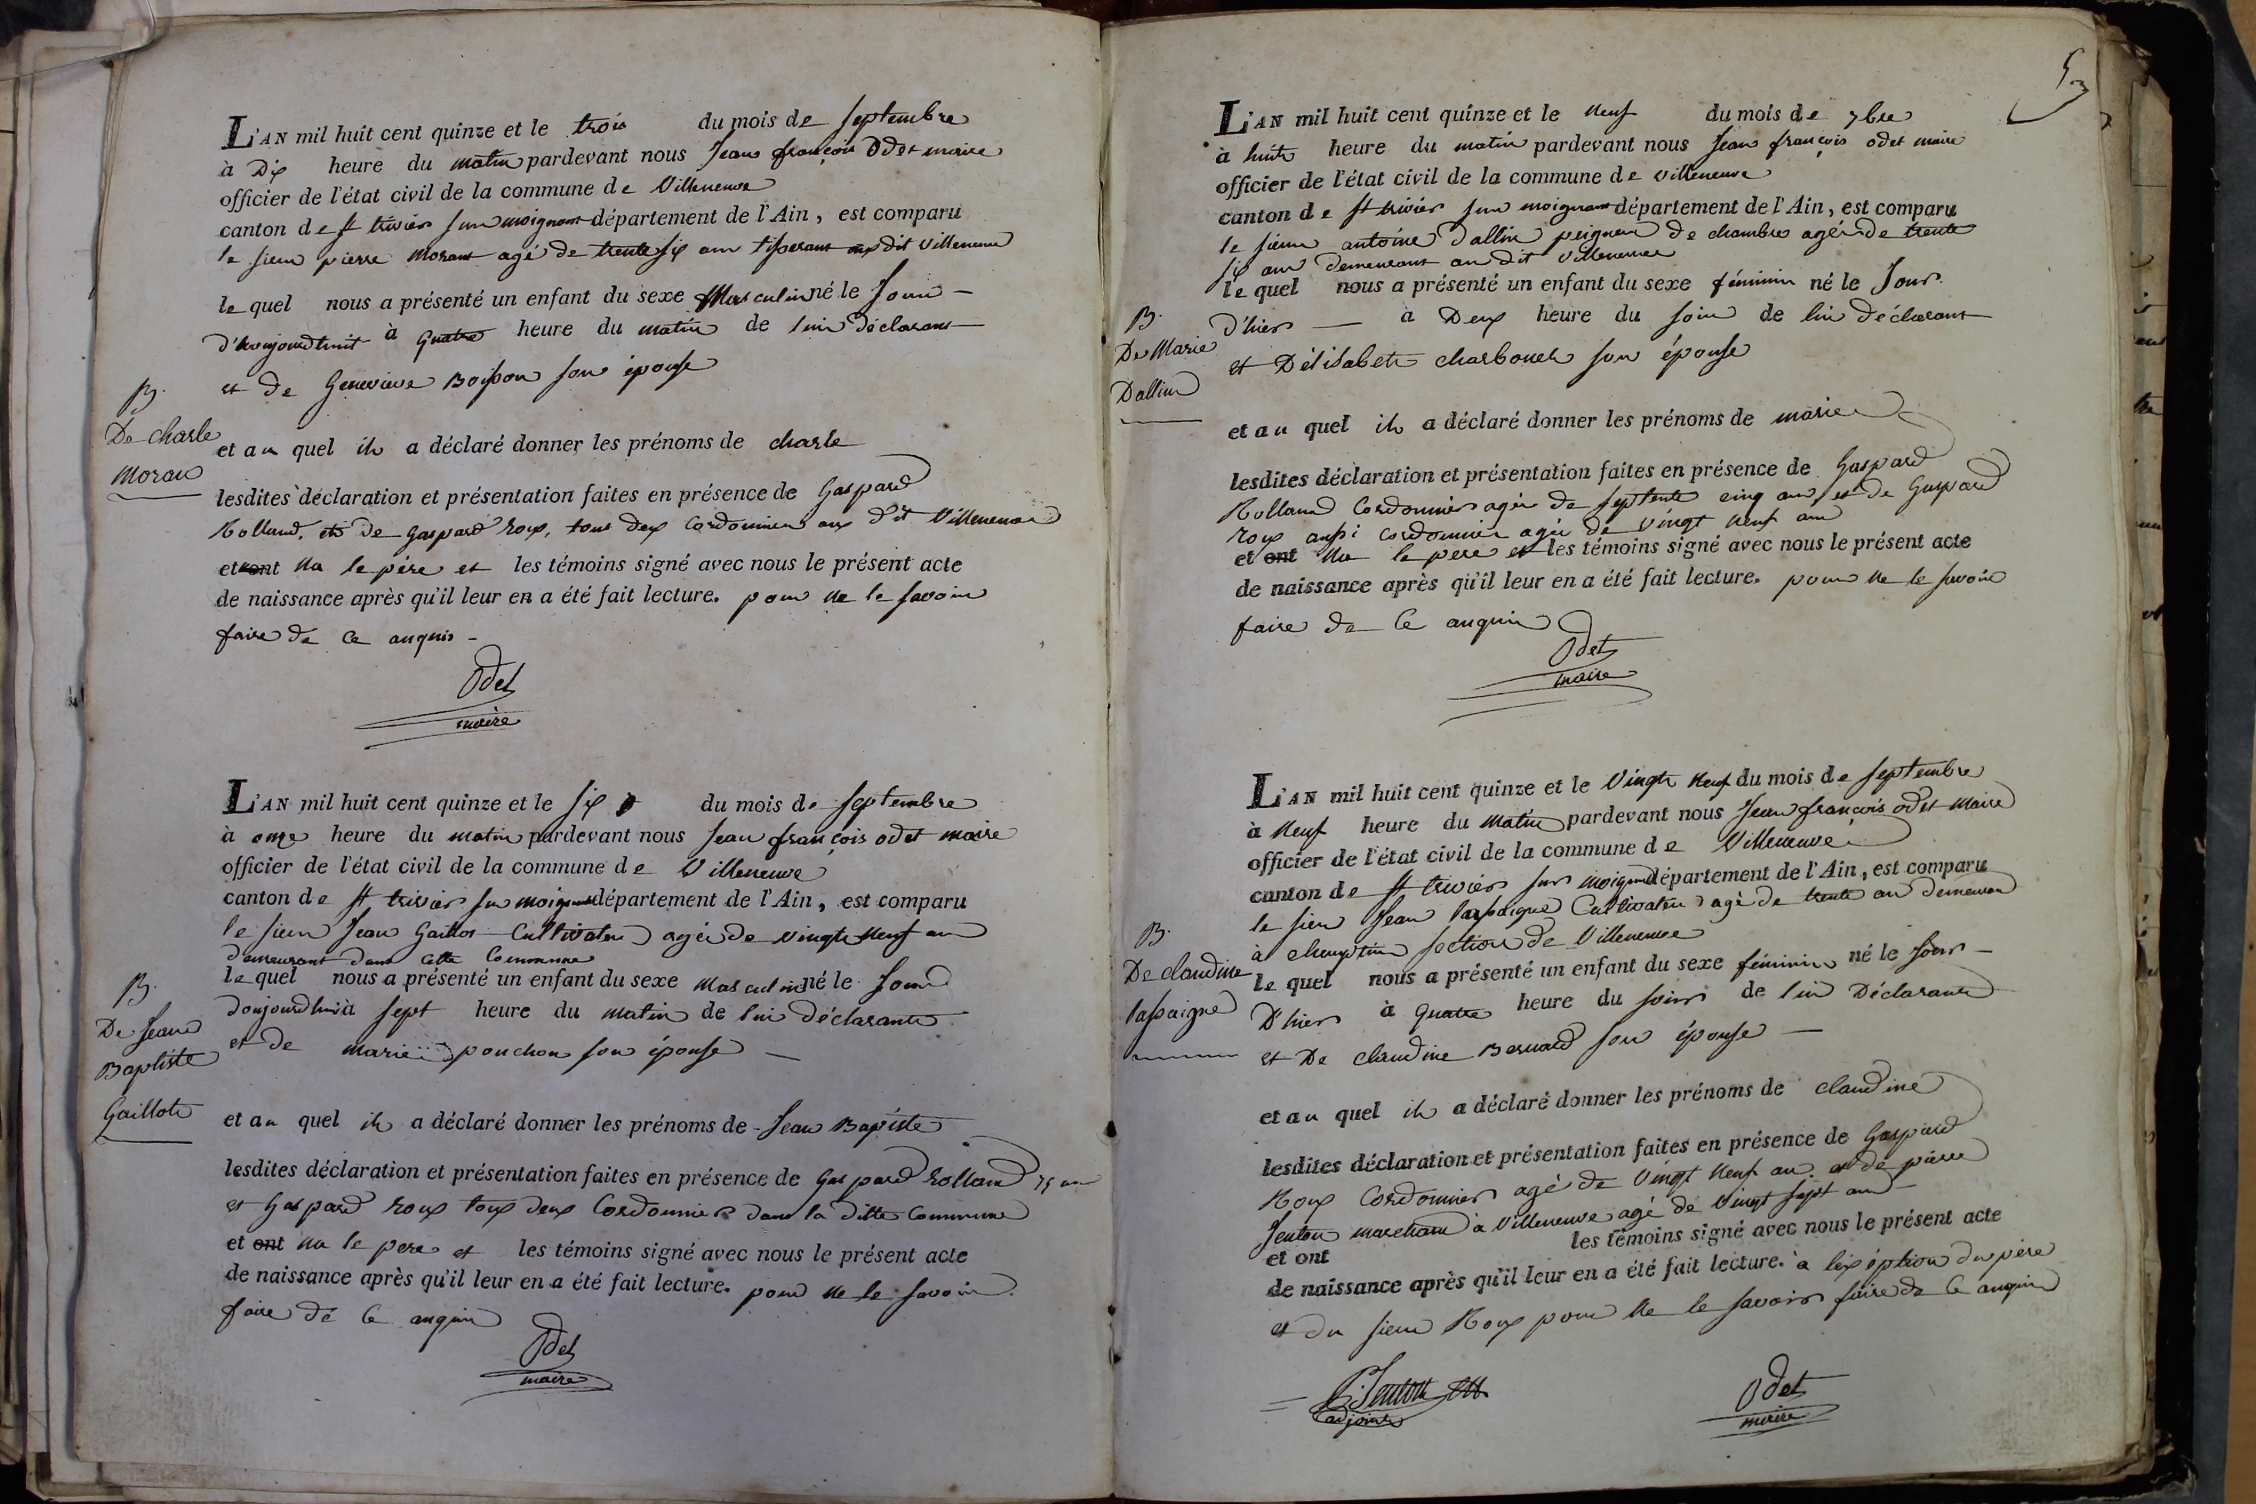 L'AN mil huit cent quinze et le trois du mois de septembre
à Dix heure du matin pardevant nous Jean françois Odet maire
officier de l'état civil de la commune de Villeneuve
canton de St trivier sur moignant département de l'Ain, est comparu
le sieur pierre Morant agé de trente six ans tisserant au dit Villeneuve
le quel nous a présenté un enfant du sexe Masculin né le Jour
d'aujourdhuit à quatre heure du matin de lui déclarant
et de Genevieve Boisson son épouse
B.
De charle
Moran
et au quel il a déclaré donner les prénoms de charle
lesdites déclaration et présentation faites en présence de Gaspard
Rolland, et de Gaspard roux, tous deux Cordonnier au dit Villeneuve
et ont na le père et les témoins signé avec nous le présent acte
de naissance après qu'il leur en a été fait lecture. pour ne le savoir
faire de ce enquis
Odet
maire
L'AN mil huit cent quinze et le six du mois de septembre
à onze heure du matin pardevant nous Jean françois odet maire
officier de l'état civil de la commune de Villeneuve
canton de St trivier sur moignant département de l'Ain, est comparu
le sieur Jean Gaillot Cultivateur agé de vingt neuf an
demeurant dans cette Commune
le quel nous a présenté un enfant du sexe Masculin né le Jour
doujourdhui à sept heure du matin de lui déclarant
et de marie ponchon son épouse
B.
De Jean
Baptiste
Gaillot
et au quel il a déclaré donner les prénoms de Jean Baptiste
lesdites déclaration et présentation faites en présence de Gaspard Rolland 75 an
et Gaspard roux tous deux Cordonnier dans la ditte Commune
et ont na le pere et les témoins signé avec nous le présent acte
de naissance après qu'il leur en a été fait lecture. pour ne le savoir
faire de ce enquis
Odet
maire
L'AN mil huit cent quinze et le neuf du mois de 7bre
à huit heure du matin pardevant nous Jean françois odet maire
officier de l'état civil de la commune de villeneuve
canton de St trivier sur moignant département de l'Ain, est comparu
le sieur antoine Dallin peigneur de chambre agé de trente
six ans demeurant au dit Villeneuve
le quel nous a présenté un enfant du sexe féminin né le Jour
d'hier à Deux heure du soir de lui déclarant
et Délisabeth charbonet son épouse
B.
De Marie
Dallin
et au quel il a déclaré donner les prénoms de marie
lesdites déclaration et présentation faites en présence de Gaspard
Rolland Cordonnier agé de septente cinq ans et de Gaspard
roux aussi cordonnier agé de vingt neuf an
et ont na le pere et les témoins signé avec nous le présent acte
de naissance après qu'il leur en a été fait lecture. pour ne le savoir
faire de ce enquis
Odet
maire
L'AN mil huit cent quinze et le Vingt neuf du mois de septembre
à neuf heure du matin pardevant nous Jean françois odet maire
officier de l'état civil de la commune de Villeneuve
canton de St trivier sur moignant département de l'Ain, est comparu
le sieur Jean lassaigne Cultivateur agé de trente an demeuran
à section de Villeneuve
le quel nous a présenté un enfant du sexe féminin né le Jour
D'hier à quatre heure du soir de lui Déclarant
et De claudine Bernard son épouse
B.
De claudine
lassaigne
et au quel il a déclaré donner les prénoms de claudine
lesdites déclaration et présentation faites en présence de Gaspard
Roux Cordonnier agé de vingt neuf an et de pierre
Jenton marchand à Villeneuve agé de vingt sept and
et ont les témoins signé avec nous le présent acte
de naissance après qu'il leur en a été fait lecture. à lexéption du père
et du sieur Roux pour ne le savoir faire de ce enquis
P. Jenton
adjoint
Odet
maire